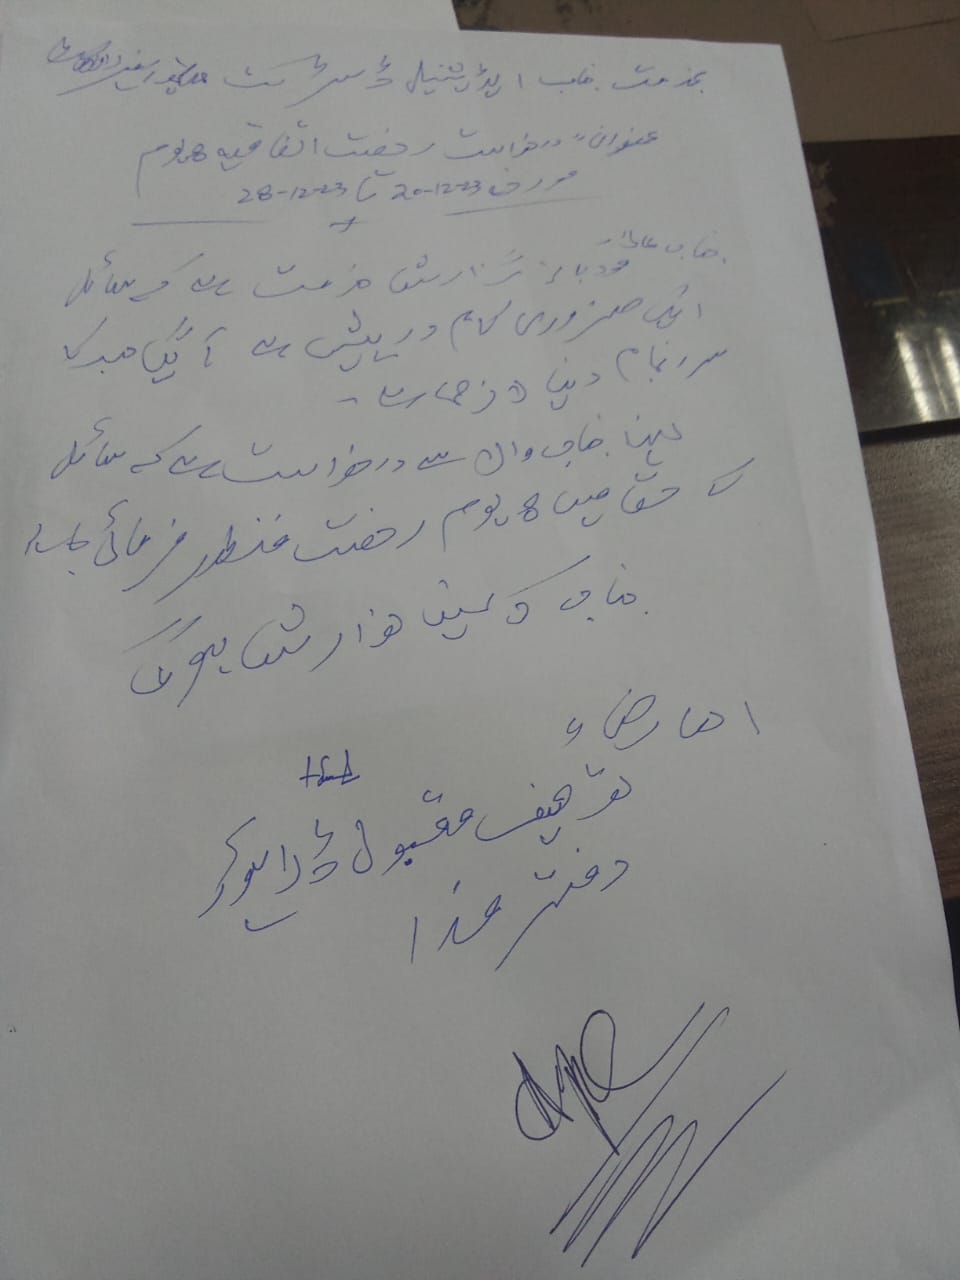 بخدمت جناب ایڈیشنیل ڈسٹرکٹ
عنوان:- درخواست رخصت اتفاقیہ 8 یوم
مورخہ 20-12-23 تا 28-12-23
جناب عالی
مودبانہ گزارش خدمت ہے کہ سائل
ایک ضروری کام درپیش ہے
سرانجام دینا
لہذا جناب والا سے درخواست ہے کہ سائل
کے حق میں 8 یوم رخصت منظور فرمائی جائے
جناب کی عین نوازش ہوگی
العارض
توصیف مقبول ڈرائیور
دفتر ھذا